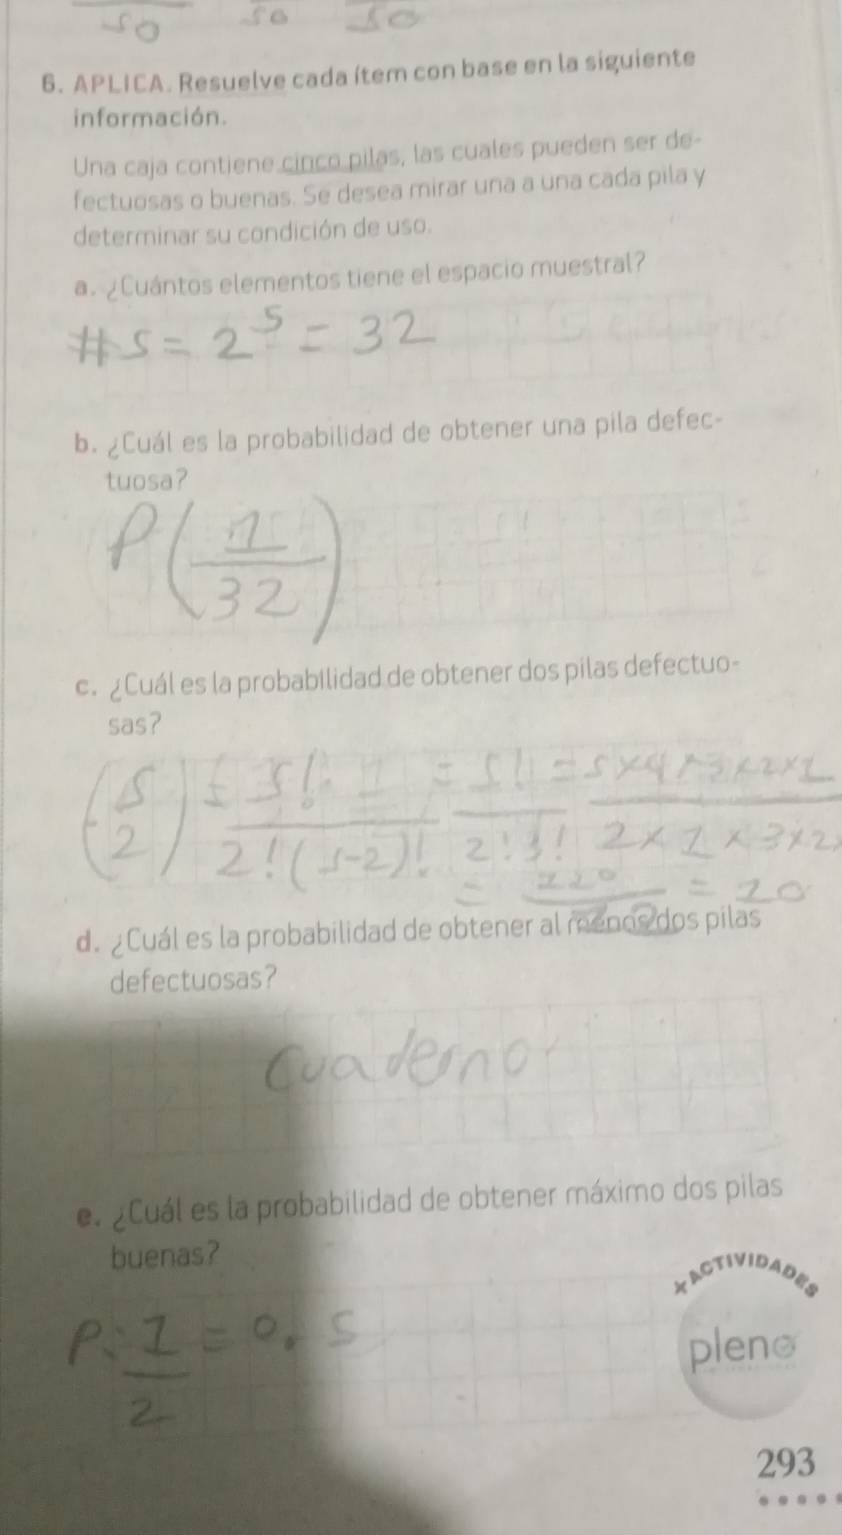 50 50 50
6. APLICA. Resuelve cada ítem con base en la siguiente
información.
Una caja contiene cinco pilas, las cuales pueden ser de-
fectuosas o buenas. Se desea mirar una a una cada pila y
determinar su condición de uso.
a. ¿Cuántos elementos tiene el espacio muestral?
#S = 2^5 = 32
b. ¿Cuál es la probabilidad de obtener una pila defec-
tuosa?
P(1/32)
c. ¿Cuál es la probabilidad de obtener dos pilas defectuo-
sas?
(5 2) = 5! / 2!(5-2)! = 5! / 2!3! = 5×4×3×2×1 / 2×1×3×2×
= 120 = 20
d. ¿Cuál es la probabilidad de obtener al menos dos pilas
defectuosas?
Cuaderno
e. ¿Cuál es la probabilidad de obtener máximo dos pilas
buenas?
P. 1/2 = 0.5
× ACTIVIDADES
pleno
293